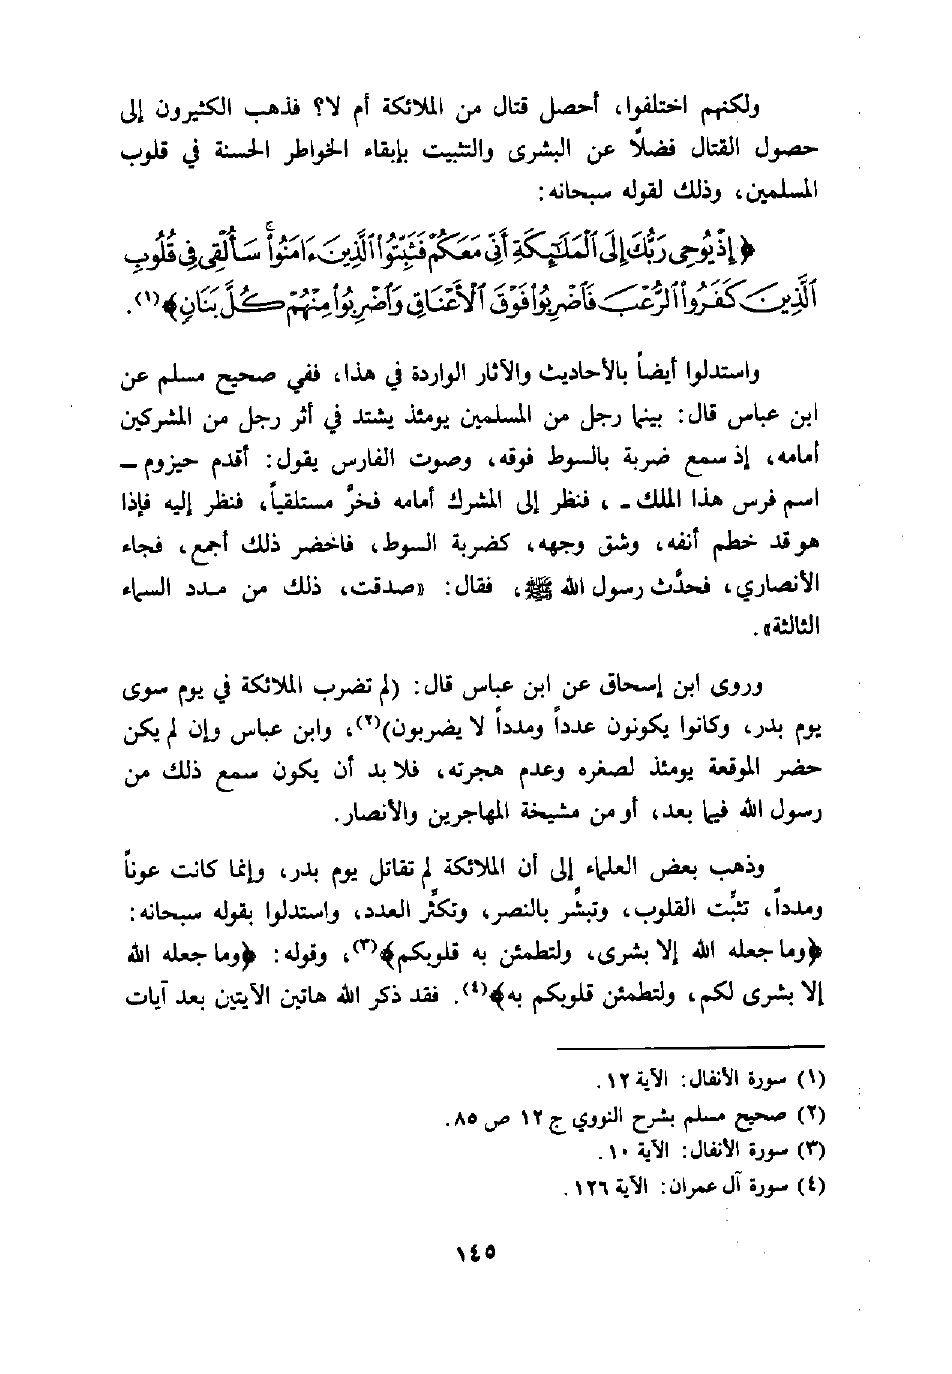 ولكنهم اختلفوا، أحصل قتال من الملائكة أم لا؟ فذهب الكثيرون إلى
حصول القتال فضلاً عن البشرى والتثبيت بإبقاء الخواطر الحسنة في قلوب
المسلمين، وذلك لقوله سبحانه:
﴿إِذْ يُوحِى رَبُّكَ إِلَى ٱلْمَلَـٰٓئِكَةِ أَنِّى مَعَكُمْ فَثَبِّتُوا۟ ٱلَّذِينَ ءَامَنُوا۟ۚ سَأُلْقِى فِى قُلُوبِ
ٱلَّذِينَ كَفَرُوا۟ ٱلرُّعْبَ فَٱضْرِبُوا۟ فَوْقَ ٱلْأَعْنَاقِ وَٱضْرِبُوا۟ مِنْهُمْ كُلَّ بَنَانٍ﴾(١).
واستدلوا أيضاً بالأحاديث والآثار الواردة في هذا، ففي صحيح مسلم عن
ابن عباس قال: بينما رجل من المسلمين يومئذ يشتد في أثر رجل من المشركين
أمامه، إذ سمع ضربة بالسوط فوقه، وصوت الفارس يقول: أقدم حيزوم –
اسم فرس هذا الملك -، فنظر إلى المشرك أمامه فخرَّ مستلقياً، فنظر إليه فإذا
هو قد خطم أنفه، وشق وجهه، كضربة السوط، فاخضر ذلك أجمع، فجاء
الأنصاري، فحدَّث رسول الله ﷺ، فقال: «صدقت، ذلك من مدد السماء
الثالثة».
وروى ابن إسحاق عن ابن عباس قال: (لم تضرب الملائكة في يوم سوى
يوم بدر، وكانوا يكونون عدداً ومدداً لا يضربون)(٢)، وابن عباس وإن لم يكن
حضر الموقعة يومئذ لصغره وعدم هجرته، فلا بد أن يكون سمع ذلك من
رسول الله فيما بعد، أو من مشيخة المهاجرين والأنصار.
وذهب بعض العلماء إلى أن الملائكة لم تقاتل يوم بدر، وإنما كانت عوناً
ومدداً، تثبَّت القلوب، وتبشَّر بالنصر، وتكثَّر العدد، واستدلوا بقوله سبحانه:
﴿وما جعله الله إلا بشرى، ولتطمئن به قلوبكم﴾(٣)، وقوله: ﴿وما جعله الله
إلا بشرى لكم، ولتطمئن قلوبكم به﴾(٤). فقد ذكر الله هاتين الآيتين بعد آيات
(١) سورة الأنفال: الآية ١٢.
(٢) صحيح مسلم بشرح النووي ج ١٢ ص ٨٥.
(٣) سورة الأنفال: الآية ١٠.
(٤) سورة آل عمران: الآية ١٢٦.
١٤٥